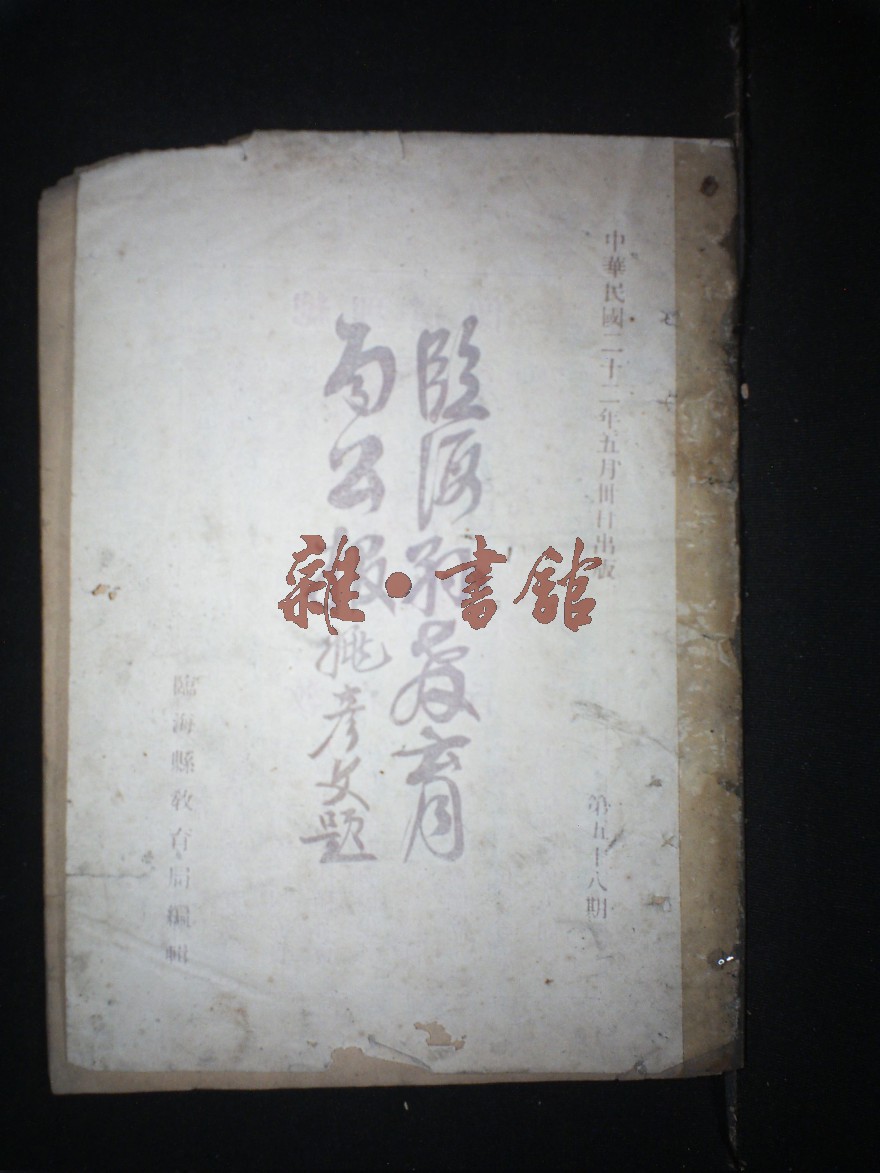 中華民國二十二年五月卅日出版
第五十八期
臨海縣教育
局公報 姚彥文題
臨海縣教育局編輯
雜·書館